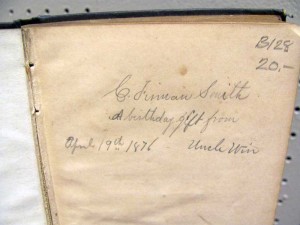 B128
20.-
C. Smith
A birthday gift from
April 19th 1876 Uncle Win